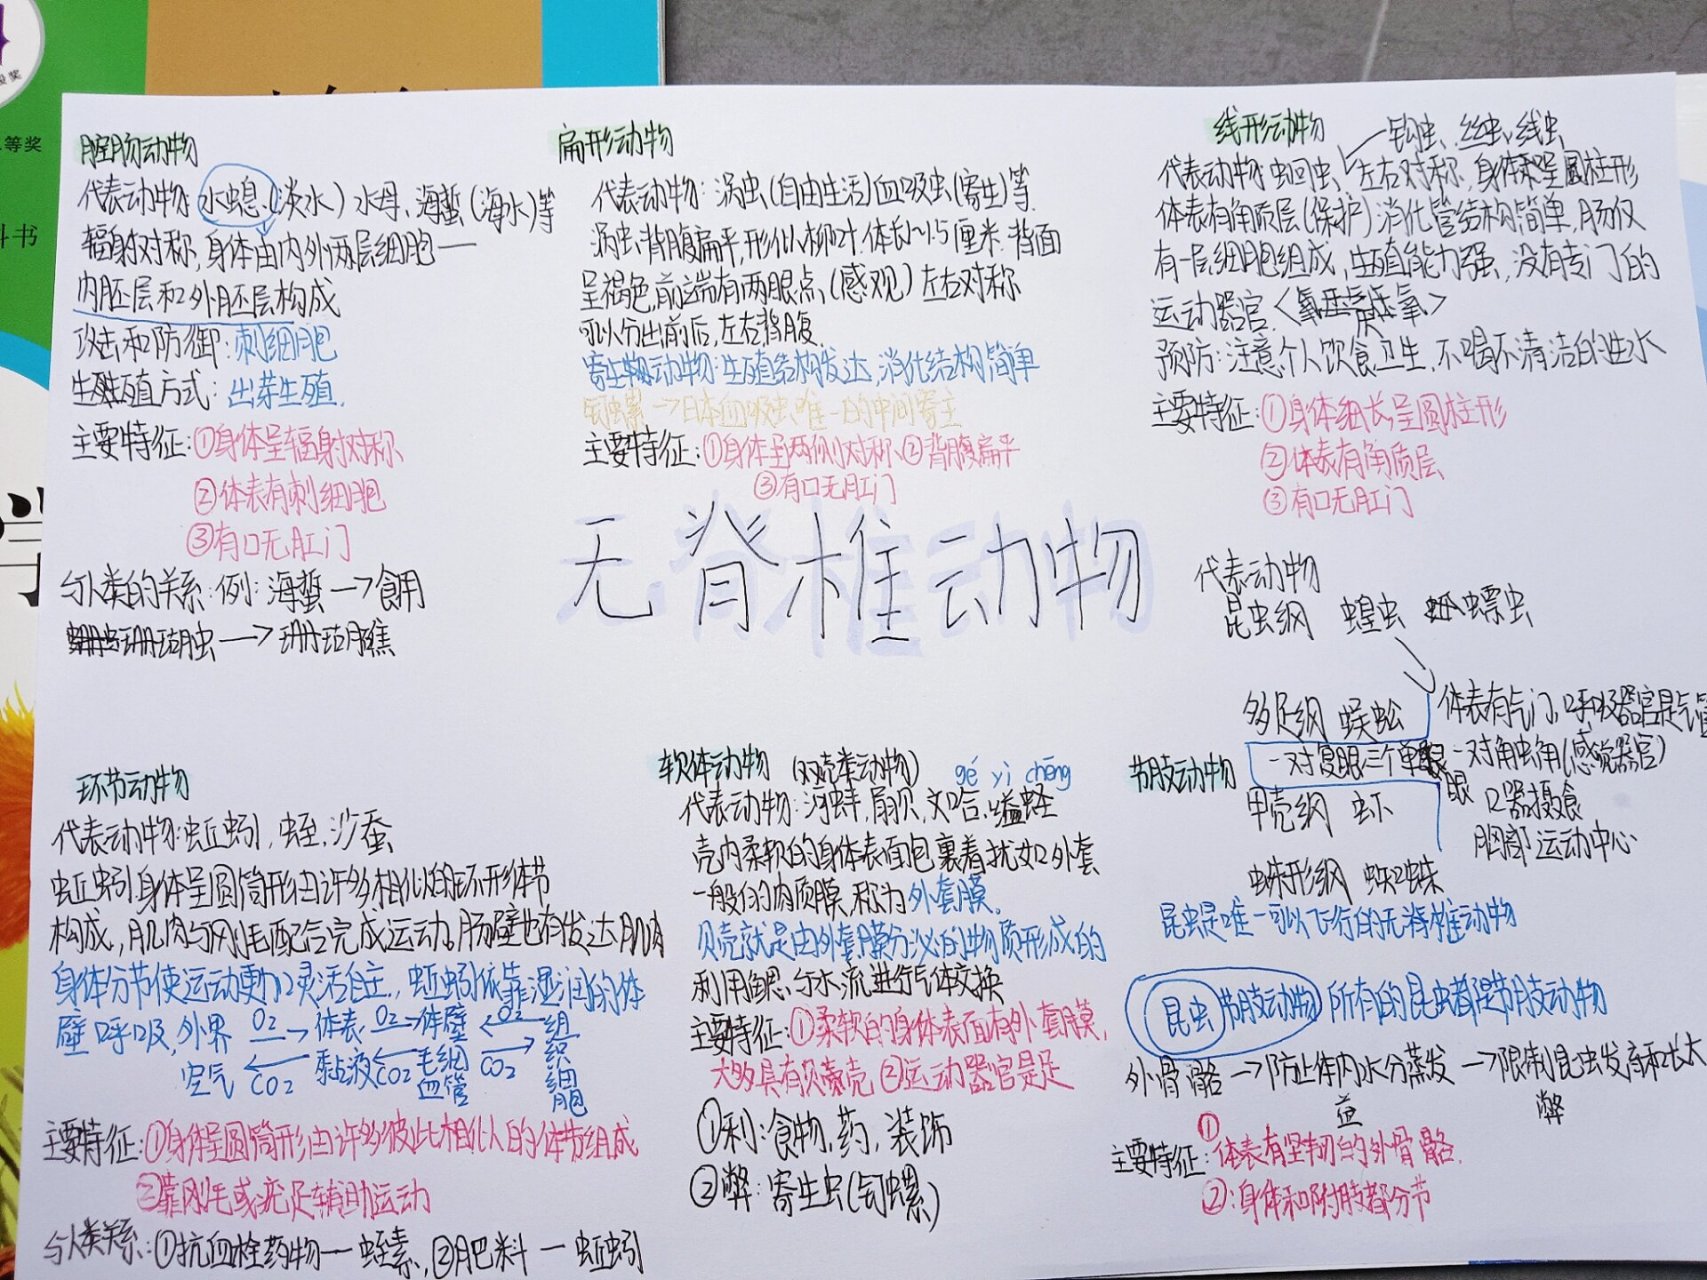 等奖
科书
腔肠动物
代表动物:水螅(淡水)水母、海蜇(海水)等
辐射对称,身体由内外两层细胞——
内胚层和外胚层构成
攻击和防御:刺细胞
生殖方式:出芽生殖.
主要特征:①身体呈辐射对称
②体表有刺细胞
③有口无肛门
与人类的关系:例:海蜇→食用
珊瑚虫→珊瑚礁
扁形动物
代表动物:涡虫(自由生活)血吸虫(寄生)等.
涡虫:背腹扁平,形似柳叶.体长1~1.5厘米.背面
呈褐色,前端有两眼点,(感观)左右对称
可以分出前后,左右,背腹.
寄生动物:生殖结构发达,消化结构简单
钉螺→日本血吸虫唯一的中间寄主
主要特征:①身体呈两侧对称、②背腹扁平
③有口无肛门
线形动物
钩虫、丝虫、线虫
代表动物:蛔虫、左右对称,身体呈圆柱形
体表有角质层(保护)消化管结构简单,肠仅
有一层细胞组成,生殖能力强,没有专门的
运动器官.
预防:注意个人饮食卫生,不喝不清洁的生水
主要特征:①身体细长呈圆柱形
②体表有角质层
③有口无肛门
无脊椎动物
代表动物
昆虫纲 蝗虫 瓢虫
多足纲 蜈蚣
体表有气门,呼吸器官是气管
节肢动物
一对复眼三个单眼
一对触角(感觉器官)
口器摄食
胸部 运动中心
甲壳纲 虾
蛛形纲 蜘蛛
昆虫是唯一可以飞行的无脊椎动物
昆虫 节肢动物 所有的昆虫都是节肢动物
外骨骼→防止体内水分蒸发→限制昆虫发育和长大
益 弊
主要特征:①体表有坚韧的外骨骼.
②:身体和附肢都分节
环节动物
代表动物:蚯蚓,蛭,沙蚕
蚯蚓:身体呈圆筒形由许多相似的环形体节
构成,肌肉与刚毛配合完成运动,肠壁也有发达肌肉
身体分节使运动更加灵活自主,蚯蚓依靠湿润的体
壁呼吸,外界空气 O2 → 体表黏液 O2 → 体壁毛细血管 O2 组织细胞
CO2 CO2 CO2
主要特征:①身体呈圆筒形由许多彼此相似的体节组成
②靠刚毛或疣足辅助运动
与人类关系:①抗血栓药物—蛭素,②肥料—蚯蚓
软体动物 (双壳类动物) gé yì chēng
代表动物:河蚌,扇贝,文蛤,缢蛏
壳内柔软的身体表面包裹着犹如外套
一般的肉质膜,称为外套膜.
贝壳就是由外套膜分泌的物质形成的
利用鱼思与水流进行气体交换
主要特征:①柔软的身体表面有外套膜,
大多具有贝壳②运动器官是足
①利:食物,药,装饰
②弊:寄生虫(钉螺)